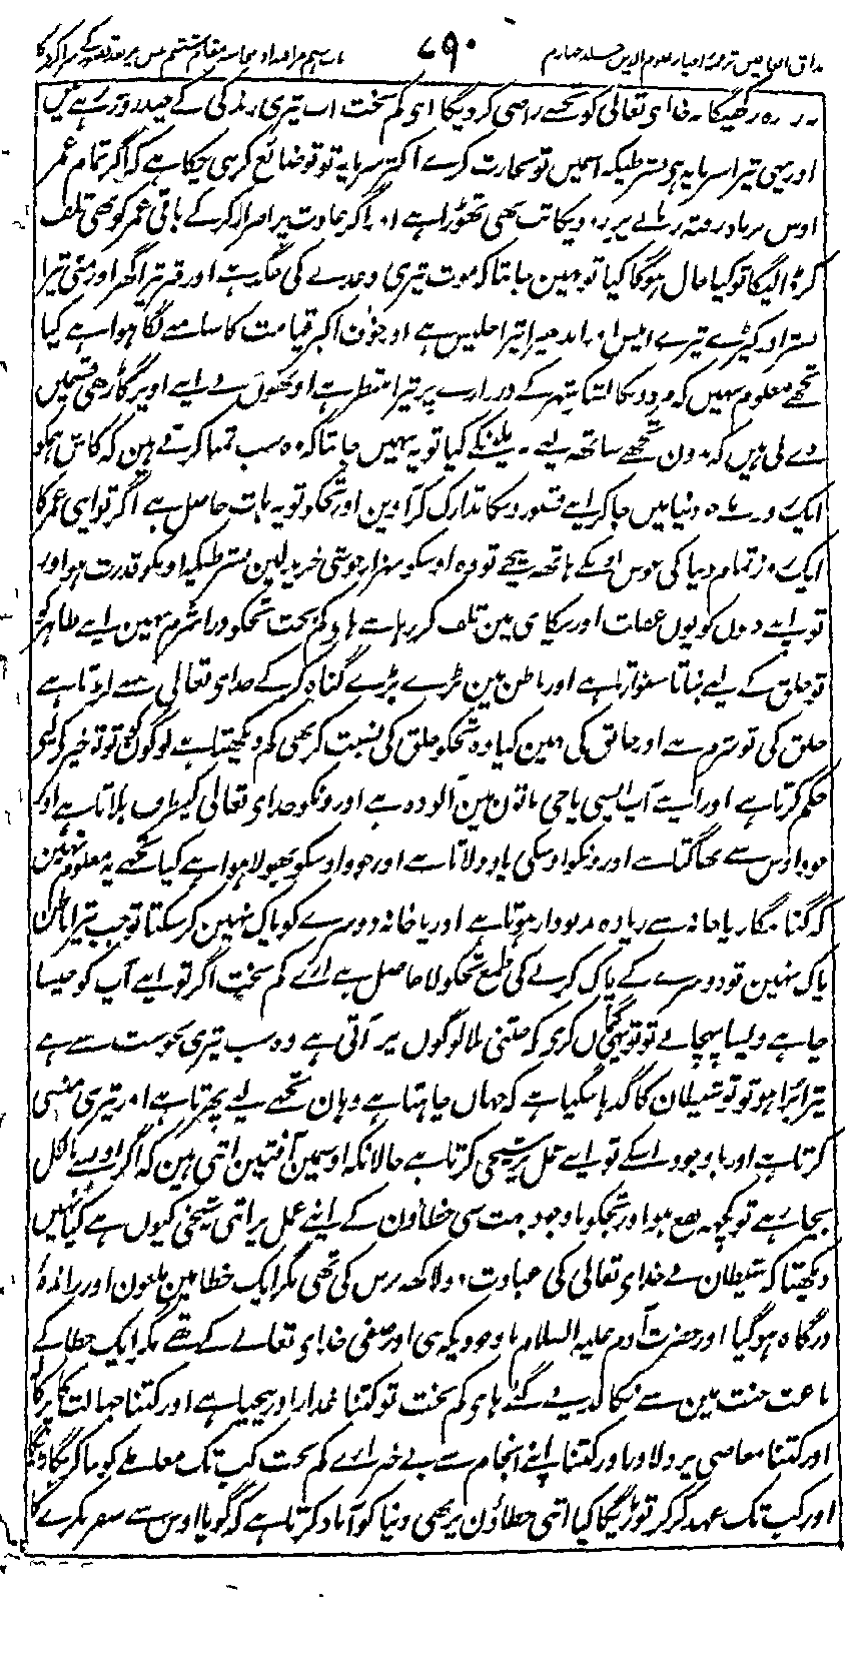 مذاق العارفین ترجمہ احیاء علوم الدین جلد چہارم ۷۹۰ باب ہشتم مراقبہ اور محاسبہ مقام ششم
خدای تعالی کو تجھسے راضی کر دیگا ای کم بخت اب تیری زندگی کے چند روز رہے ہیں
اور یہی تیرا سرمایہ ہی بشرطیکہ اسمیں تو تجارت کرے اکثر سرمایہ تو تو ضائع کر ہی چکا ہے کہ اگر تمام عمر
اوس برباد رفتہ پر دیکا تب بھی تھوڑا ہے اور اگر عادت پر اصرار کر کے باقی عمر کو بھی تلف
کر ڈالیگا تو کیا حال ہوگا کیا تو نہین جانتا کہ موت تیری وعدے کی جگہ ہے اور قبر تیرا گھر اور مٹی تیرا
بستر اور کیڑے تیرے انیس اور اندھیرا تیرا جلیس ہے اور خوف اکبر قیامت کا سامنے لگا ہوا ہے کیا
تجھے معلوم نہیں کہ مردوں کا لشکر شہر کے دروازے پر تیرا منتظر ہے اونھوں نے اپنے اوپر گاڑھی قسمیں
دے لی ہیں کہ بدون تجھے ساتھ لیے نہ ٹلینگے کیا تو یہ نہیں جانتا کہ وہ سب تمنا کرتے ہین کہ کاش ہمکو
ایک روز دنیا میں جا کر اپنے قصوروں کا تدارک کر آوین اور تجکو تو یہ بات حاصل ہے اگر تو اپنی عمر کا
ایک روز تمام دنیا کی عوض اونکے ہاتھ بیچے تو وہ اوسکو ہزار خوشی خریدلین بشرطیکہ اونکو قدرت ہو اور
تو اپنے دنوں کو یوں غفلت اور بیکاری مین تلف کر رہا ہے ہاے کم بخت تجکو ذرا شرم نہین اپنے ظاہر کو
تو خلق کے لیے بناتا سنوارتا ہے اور باطن مین بڑے بڑے گناہ کر کے خدای تعالی سے لڑتا ہے
خلق کی تو شرم ہے اور خالق کی نہین کیا وہ تجکو خلق کی نسبت کر بھی کم دیکھتا ہے لوگوں کو تو خیر کے لیے
حکم کرتا ہے اور اپنے آپ ایسی پاجی باتون مین آلودہ ہے اور ونکو خدای تعالی کیطرف بلاتا ہے اور
خود اوس سے بھاگتا ہے اور ونکو اوسکی یاد دلاتا ہے اور خود اوسکو بھولا ہوا ہے کیا تجھے یہ معلوم نہین
کہ گناہگار پاخانہ سے زیادہ بدبودار ہوتا ہے اور پاخانہ دوسرے کو پاک نہین کر سکتا تو جب تیرا باطن
پاک نہین تو دوسرے کے پاک کرنے کی طمع تجکو لاحاصل ہے ارے کم بخت اگر تو اپنے آپ کو جیسا
چاہے ویسا پہچانے تو تو یہی گمان کرے کہ جتنی بلا لوگوں پر آتی ہے وہ سب تیری نحوست سے ہے
تیرا برا ہو تو تو شیطان کا گدہا بنگیا ہے کہ جہاں چاہتا ہے وہان تجھے لیے پھرتا ہے اور تیری ہنسی
کرتا ہے اور باوجود اسکے تو اپنے عمل پر شیخی کرتا ہے حالانکہ اوسمین آفتین اتنی ہین کہ اگر اونسے بالکل
بچا رہے تو کچھ نفع ہو اور تجکو باوجود بہت سی خطاؤن کے اپنے عمل پر اتنی شیخی کیوں ہے کیا نہیں
دیکھتا کہ شیطان نے خدای تعالی کی عبادت دو لاکھ برس کی تھی مگر ایک خطا مین ملعون اور راندۂ
درگاہ ہو گیا اور حضرت آدم علیہ السلام باوجودیکہ نبی اور صفی خدای تعالے کے تھے مگر ایک خطا کے
باعث جنت مین سے نکالدیے گئے ہای کم بخت تو کتنا غدار اور بیحیا ہے اور کتنا جہالت کا
اور کتنا معاصی پر دلاور اور کتنا اپنے انجام سے بے خبر ارے کم بخت کب تک معاملے کو
اور کب تک عہد کر کر توڑیگا کیا اتنی خطاؤن پر بھی دنیا کو آباد کرتا ہے کہ گویا اوس سے سفر نکرے گا